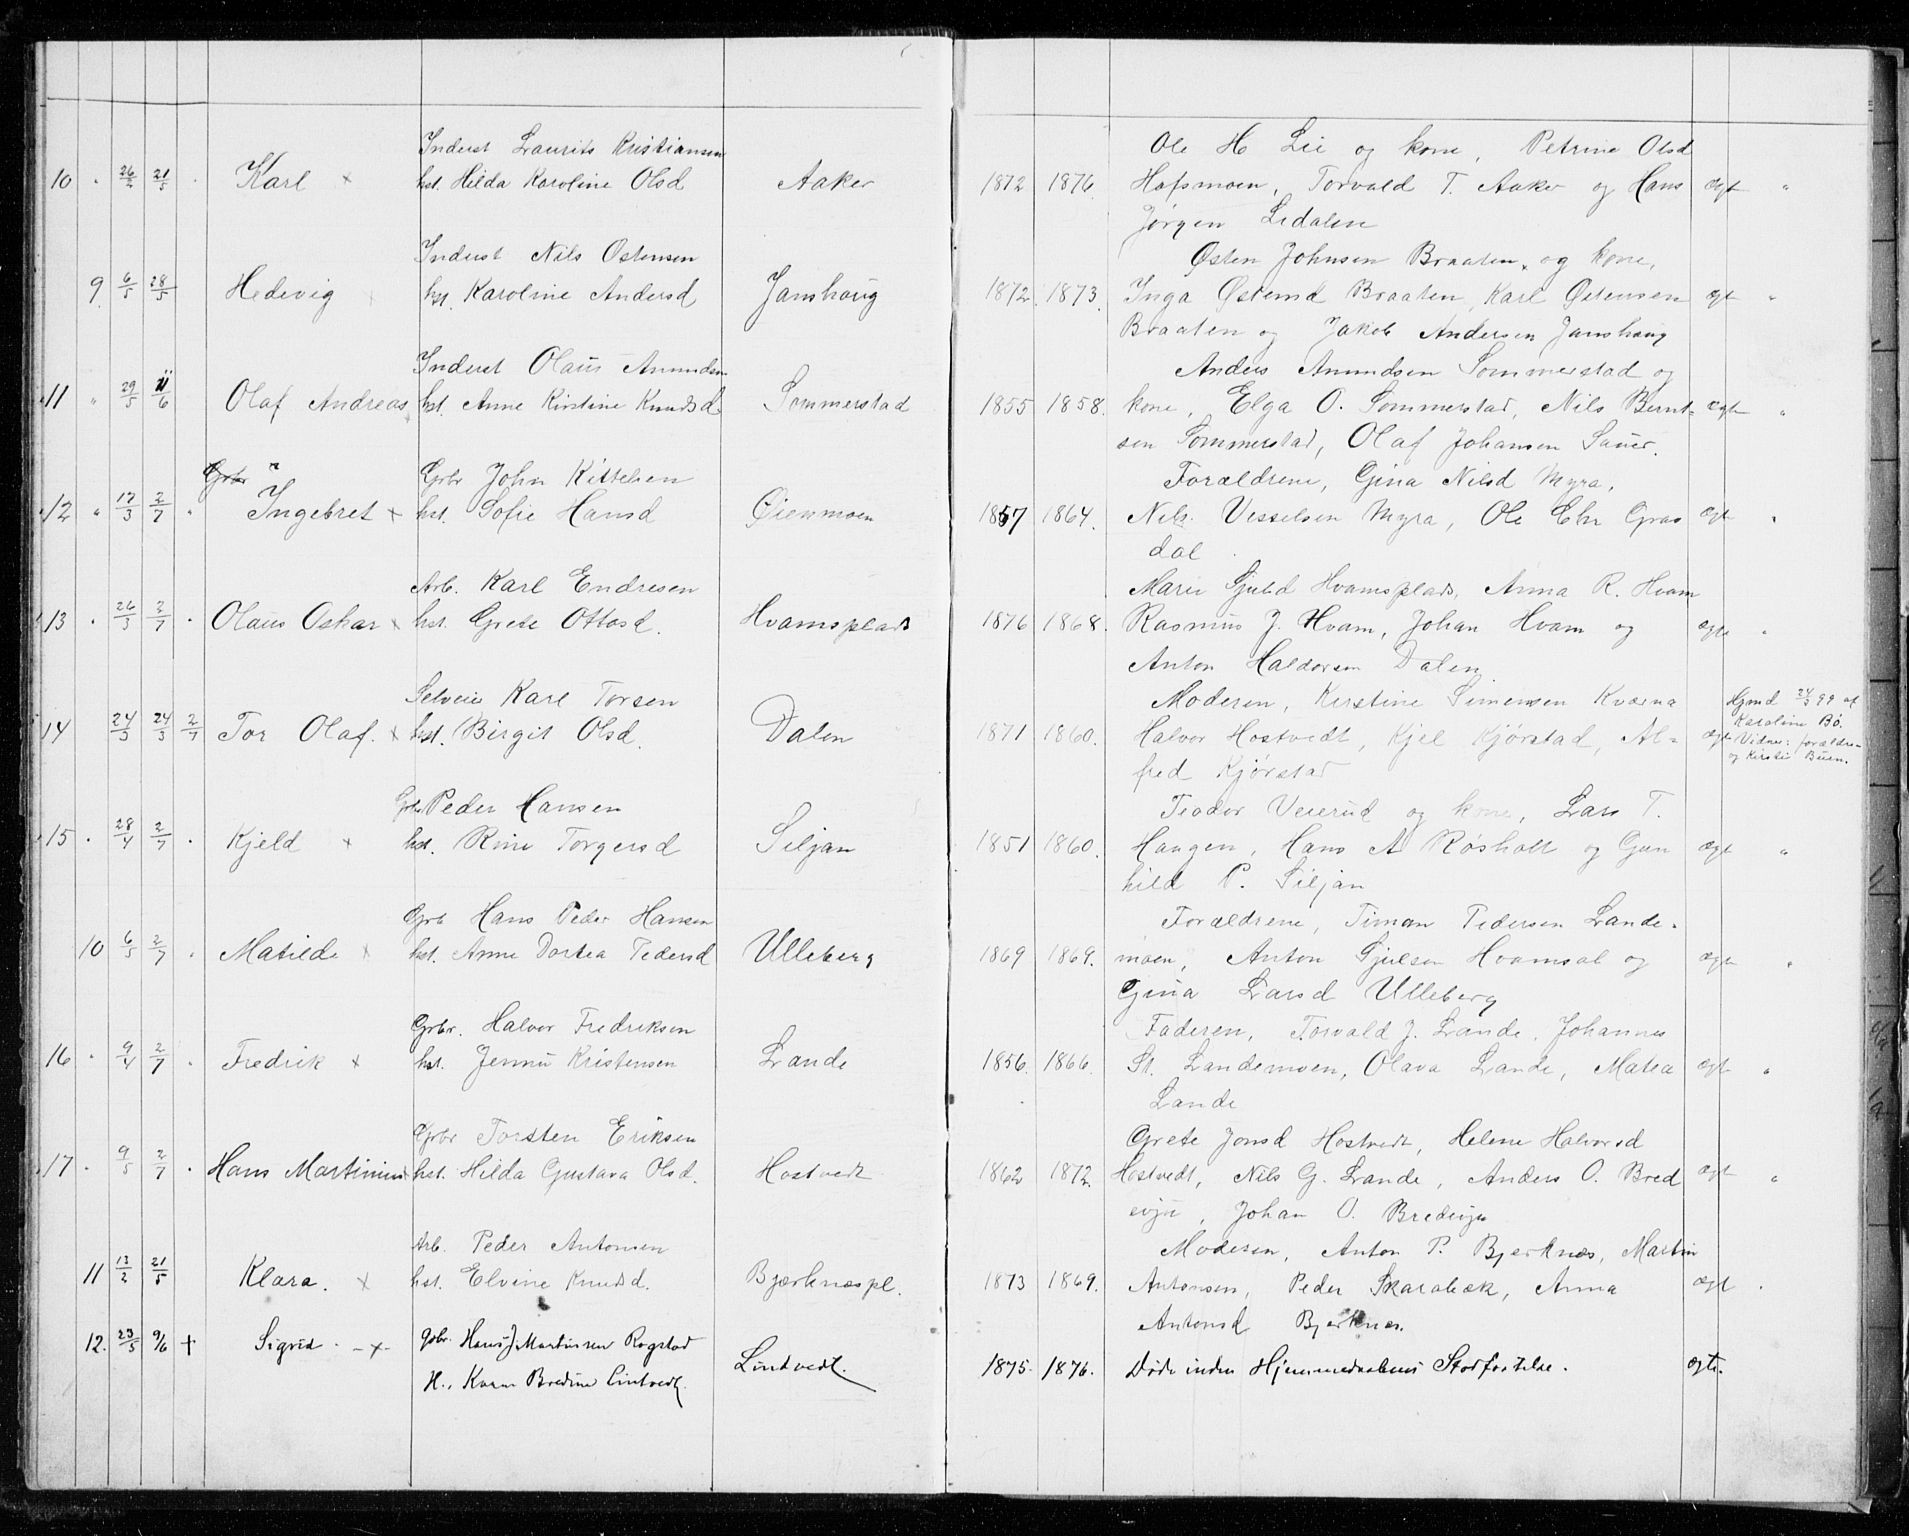 Inderst Laurits Kristiansen
10 . 26/2 21/5 . Karl x hst. Hilda Karoline Olsd Aaker
Inderst Nils Ostensen
9 6/5 28/5 Hedevig x hst. Karoline Andersd Janshaug
Inderst Olaus Anundsen
11 " 29/5 11/6 Olaf Andreas x hst. Anne Kirstine Knudsd. Sommerstad
Grbr John Kittelsen
12 " 13/3 2/7 Ingebret x hst. Sofie Hansd Øienmoen
Arb. Karl Endresen
13 . 26/3 2/7 . Olaus Oskar x hst. Grete Ottosd. Hvamsplads
Selveier Karl Torsen
14 24/3 24/3 2/7 Tor Olaf. x hst. Birgit Olsd. Dalen
Grbr Peder Hansen
15 . 28/4 2/7 . Kjeld x hst. Rine Torgersd Siljan
Grb Hans Peder Hansen
10 6/5 2/7 . Matilde x hst. Anne Dortea Pedersd Ulleberg
Grbr. Halvor Fredriksen
16 . 9/4 2/7 . Fredrik x hst. Jenny Kristensen Lande
Grbr Torsten Eriksen
17 . 9/5 2/7 . Hans Martinius hst. Hilda Gustava Olsd. Hostvedt
Arb. Peder Antonsen
11 13/2 21/5 Klara. x hst. Elvine Knudsd. Bjærknæspl.
12. 23/5 9/6 + Sigrid - x - gbr. Hans J Martinsen Rogstad
H. Karen Bredine Lintvedt. Lindvedt.
Ole H Lie og kone, Petrine Olsd
1872 1876 Hafsmoen, Torvald T. Aaker og Hans ægt "
Jørgen Lidalen
Østen Johnsen Braaten, og kone,
1872. 1873. Inga Østensd Braaten, Karl Østensen ægt "
Braaten og Jakob Andersen Janshaug
Anders Anundsen Sommerstad og
1855 1858. kone, Elga O. Sommerstad, Nils Bernt- ægte "
sen Sommerstad, Olaf Johansen Sauer.
Forældrene, Gina Nilsd Myra,
1857 1864. Nils Vesselsen Myra, Ole Chr Gras ægt "
dal
Maren Gjulsd Hvamsplads, Anna R. Hvam
1876 1868. Rasmus J. Hvam, Johan Hvam og ægte "
Anton Haldorsen Dalen
Moderen, Kirstine Simensen Kværna
1871 1860. Halvor Hostvedt, Kjel Kjørstad, Al- ægt
fred Kjørstad
Hjmd 24/3 99 af
Karoline Bø.
Vidner: forældre-
og Kirsti Buen.
Teodor Veierud og kone, Lars T.
1851 1860. Haugen, Hans A Røsholt og Gun ægt "
hild P. Siljan
Forældrene, Timan Pedersen Lande-
1869 1869. moen, Anton Gjulsen Hvamsal og ægt "
Gina Larsd Ulleberg
Faderen, Torvald J. Lande, Johannes
1856. 1866. St. Landemoen, Olava Lande, Matea ægt "
Lande
Grete Jonsd Hostvedt, Helene Halvorsd
1862 1872. Hostvedt, Nils G. Lande, Anders O. Bred ægt "
evju, Johan O. Bredevju
Moderen, Anton P. Bjerknæs, Martin
1873 1869. Antonsen, Peder Skarabæk, Anna ægt .
Antonsd Bjerknæs.
1875. 1876. Døde inden Hjemmedaabens Stadfæstelse. ægte.